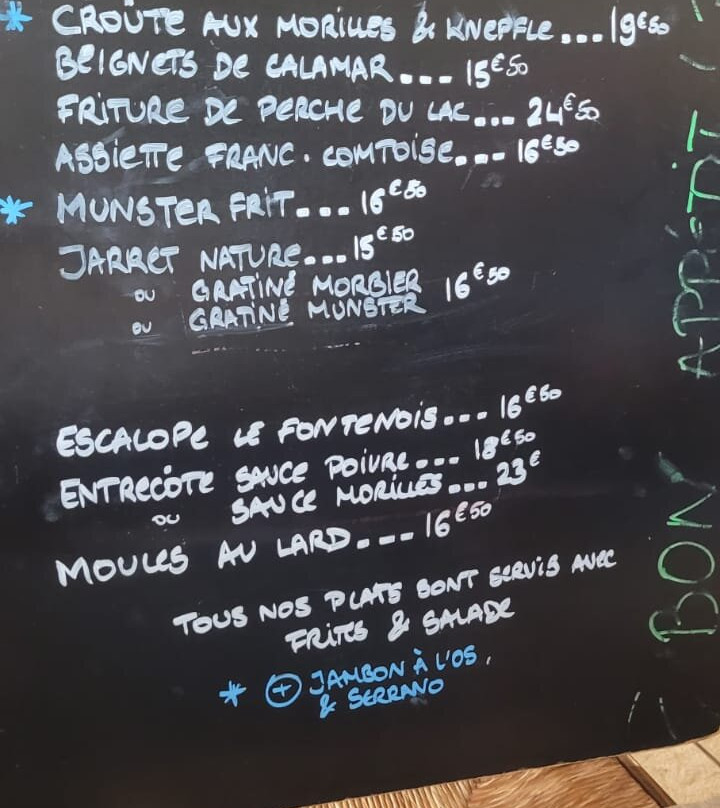 * CROÛTE AUX MORILLES & KNEPFLE... 19€50
BEIGNETS DE CALAMAR... 15€50
FRITURE DE PERCHE DU LAC... 24€50
ASSIETTE FRANC.COMTOISE... 16€50
* MUNSTER FRIT... 16€50
JARRET NATURE... 15€50
OU GRATINÉ MORBIER 16€50
OU GRATINÉ MUNSTER
ESCALOPE LE FONTENOIS... 16€50
ENTRECÔTE SAUCE POIVRE... 18€50
OU SAUCE MORILLES... 23€
MOULES AU LARD... 16€50
TOUS NOS PLATS SONT SERVIS AVEC
FRITES & SALADE
* + JAMBON À L'OS,
& SERRANO
BON APPÉTIT